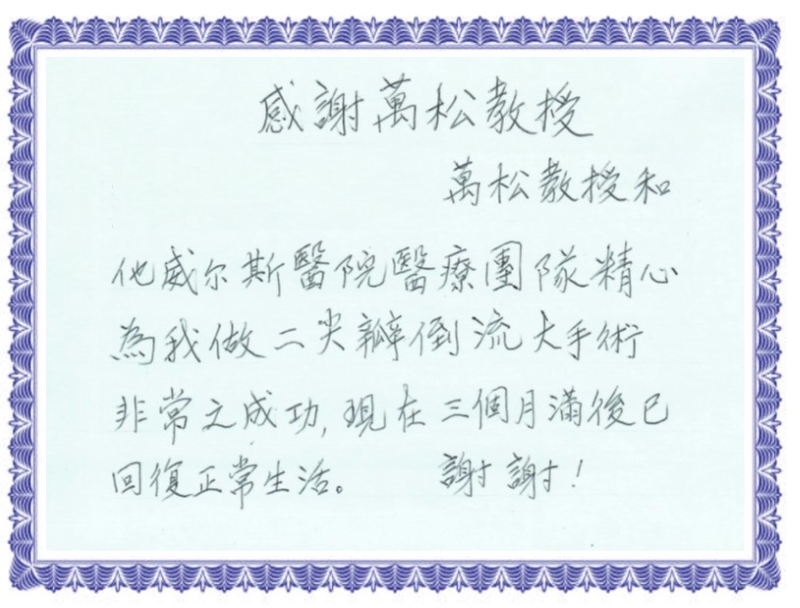 感謝萬松教授
萬松教授和
他威尔斯醫院醫療團隊精心
為我做二尖瓣倒流大手術
非常之成功, 現在三個月滿後已
回復正常生活。 謝謝!